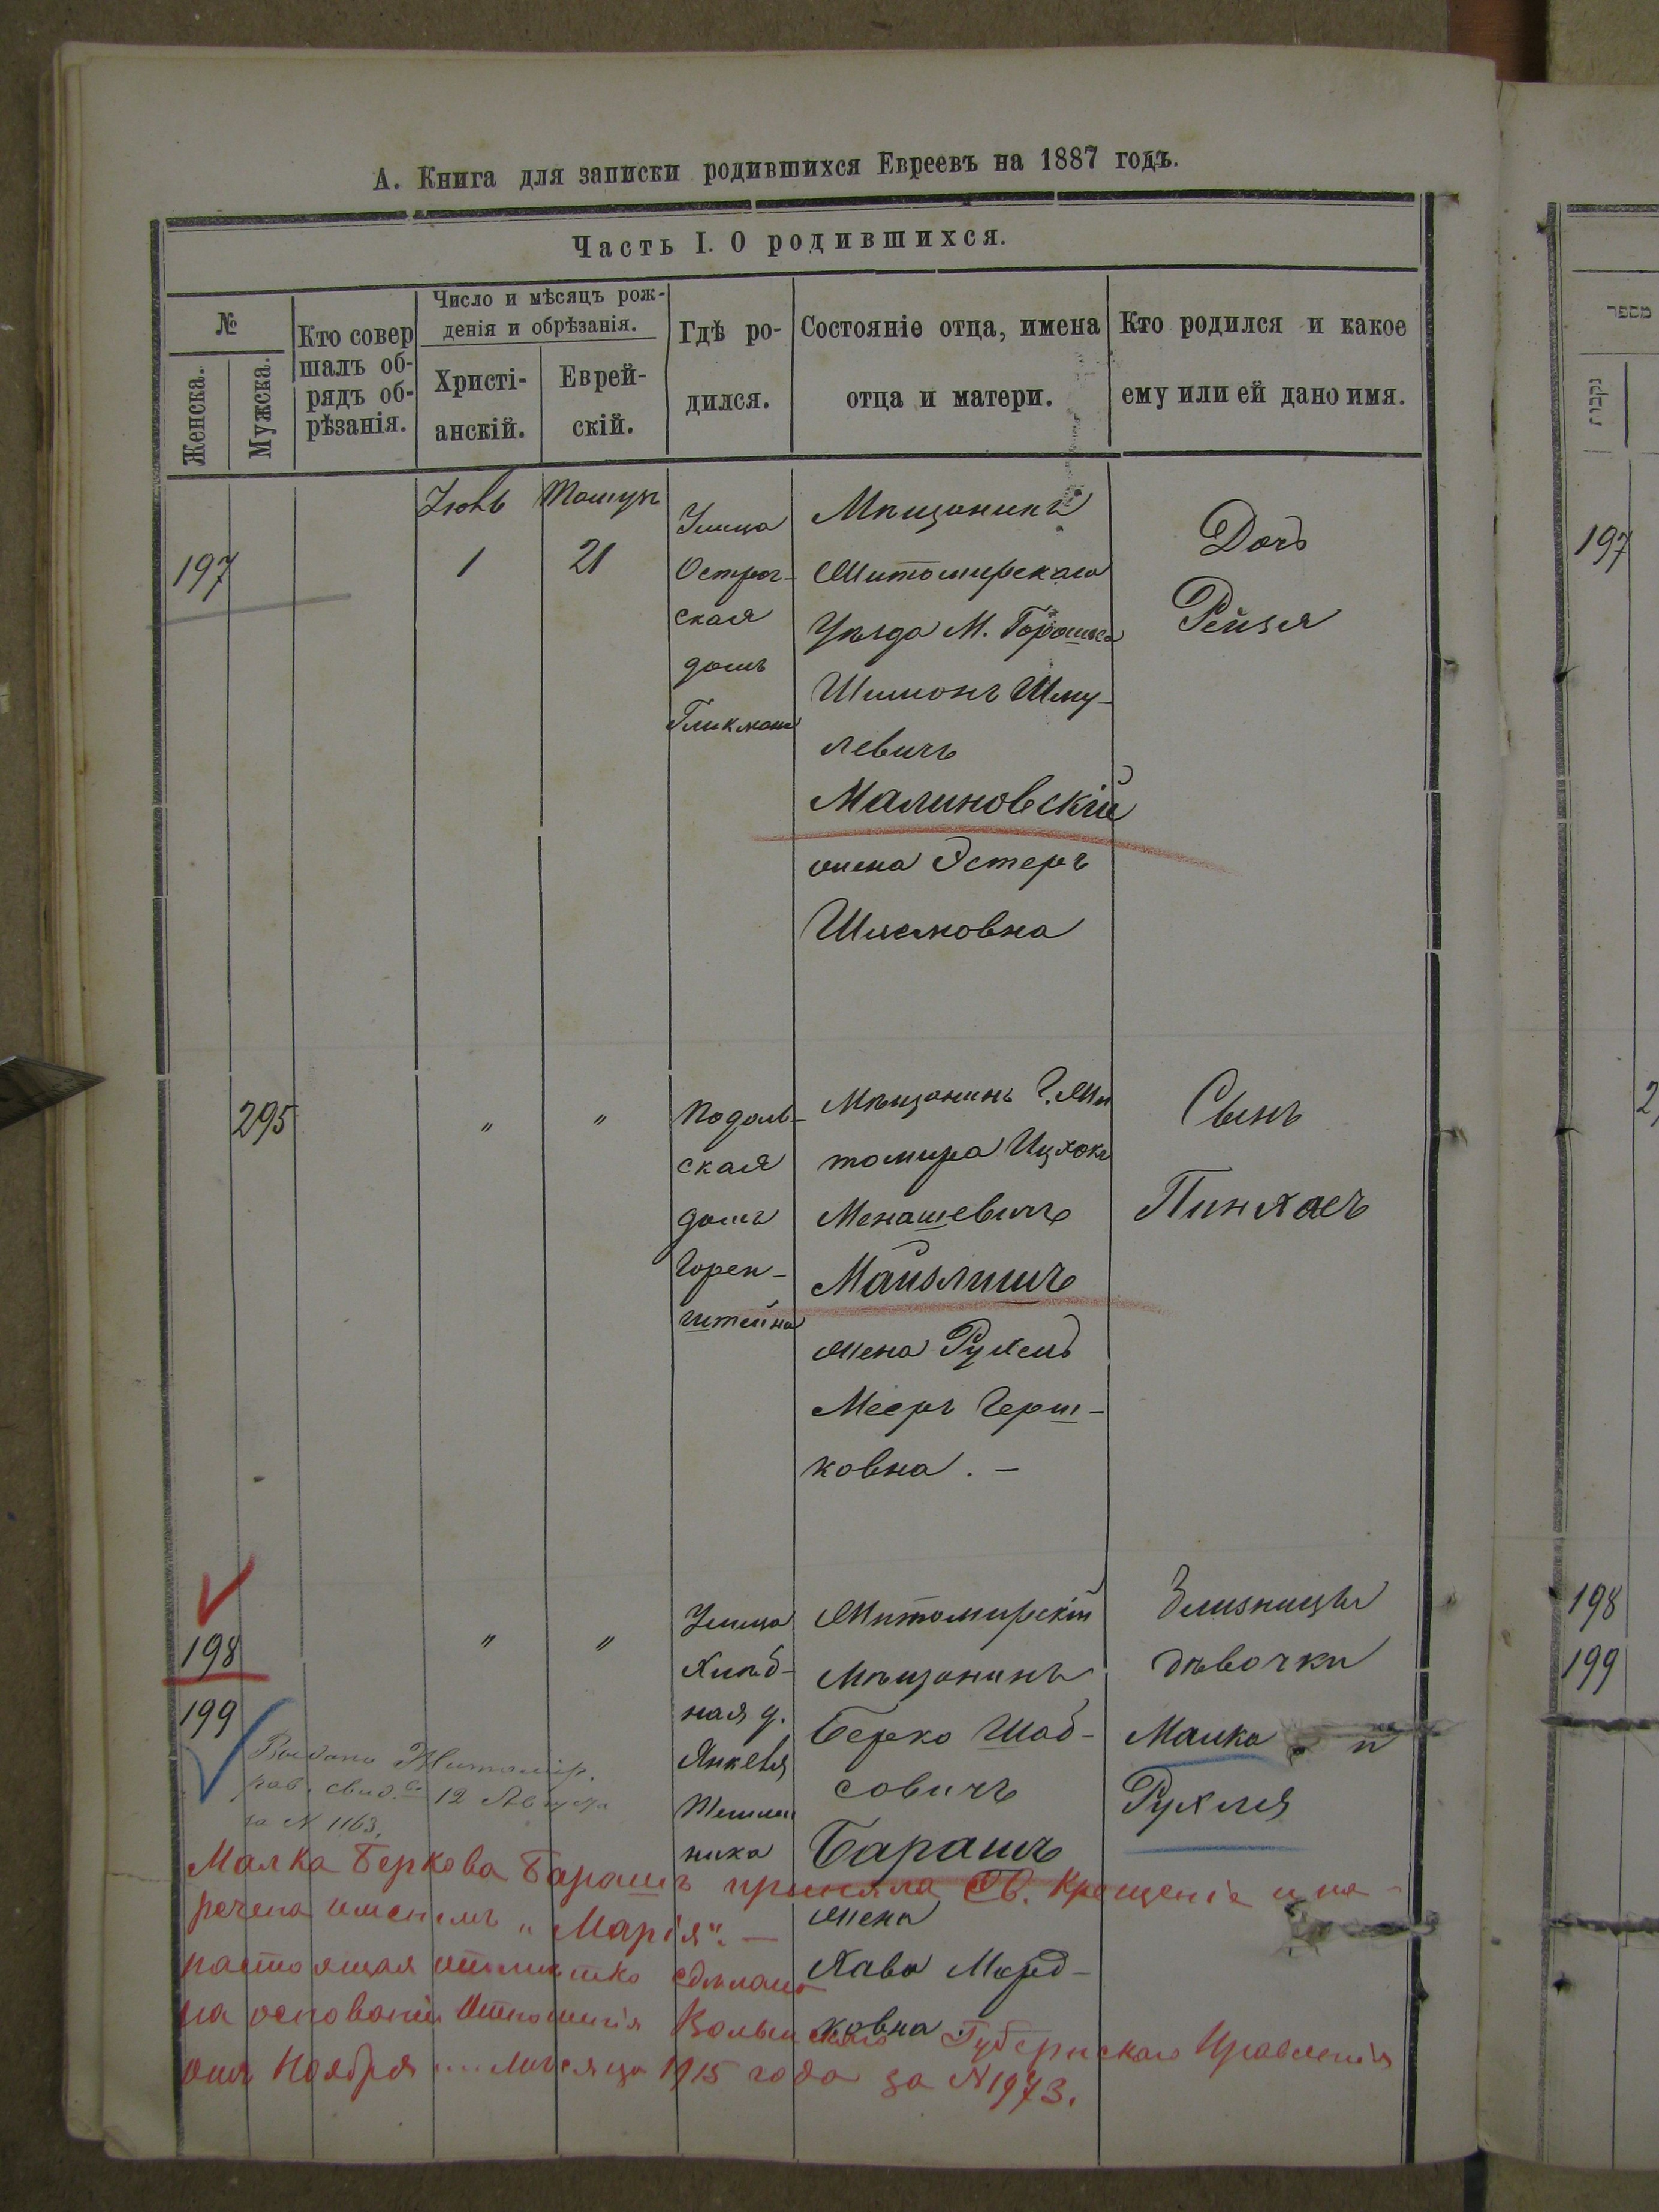 А. Книга для записки родившихся Евреевъ на 1887 годъ.
Часть I. О родившихся.
№
Женска.
Мужска.
Кто совер
шалъ об-
рядъ об-
рѣзанія.
Число и мѣсяцъ рож-
денія и обрѣзанія.
Христі-
анскій.
Еврей-
скій.
Гдѣ ро-
дился.
Состояніе отца, имена
отца и матери.
Кто родился и какое
ему или ей дано имя.
197
Іюль
1
21
Улица
Острог-
ская
домъ
Гликмана
Мѣщанинъ
Житомирскаго
Уѣзда М. Горошка
Шимонъ Шму-
левичъ
Малиновскій
жена Эстеръ
Шлемовна
Дочь
Рейзя
295
"
"
Подоль-
ская
домъ
Горен-
штейна
Мѣщанинъ Г. Жи
томира Ицхокъ
Менашевичъ
Майзлишъ
жена Рухель
Мееръ Герш-
ковна. —
Сынъ
Пинхасъ
198
199
"
"
Улица
Хлѣб-
ная д.
Янкеля
ника
Житомирскій
Мѣщанинъ
Берко Шаб-
совичъ
Барашъ
жена
Хава Морд-
ковна
Близницы
дѣвочки
Малка и
Рухля
Выдано Житомір.
рав. свид. 12 Августа
за N 1163.
Малка Беркова Барашъ приняла Св. Крещеніе и на-
речена именемъ "Марія". —
настоящая отмѣтка сдѣлана
на основаніи Отношенія Волынскаго Губернскаго Правленія
Ноября Мѣсяца 1915 года за N 1973.
מספר
נקבות
197
198
199